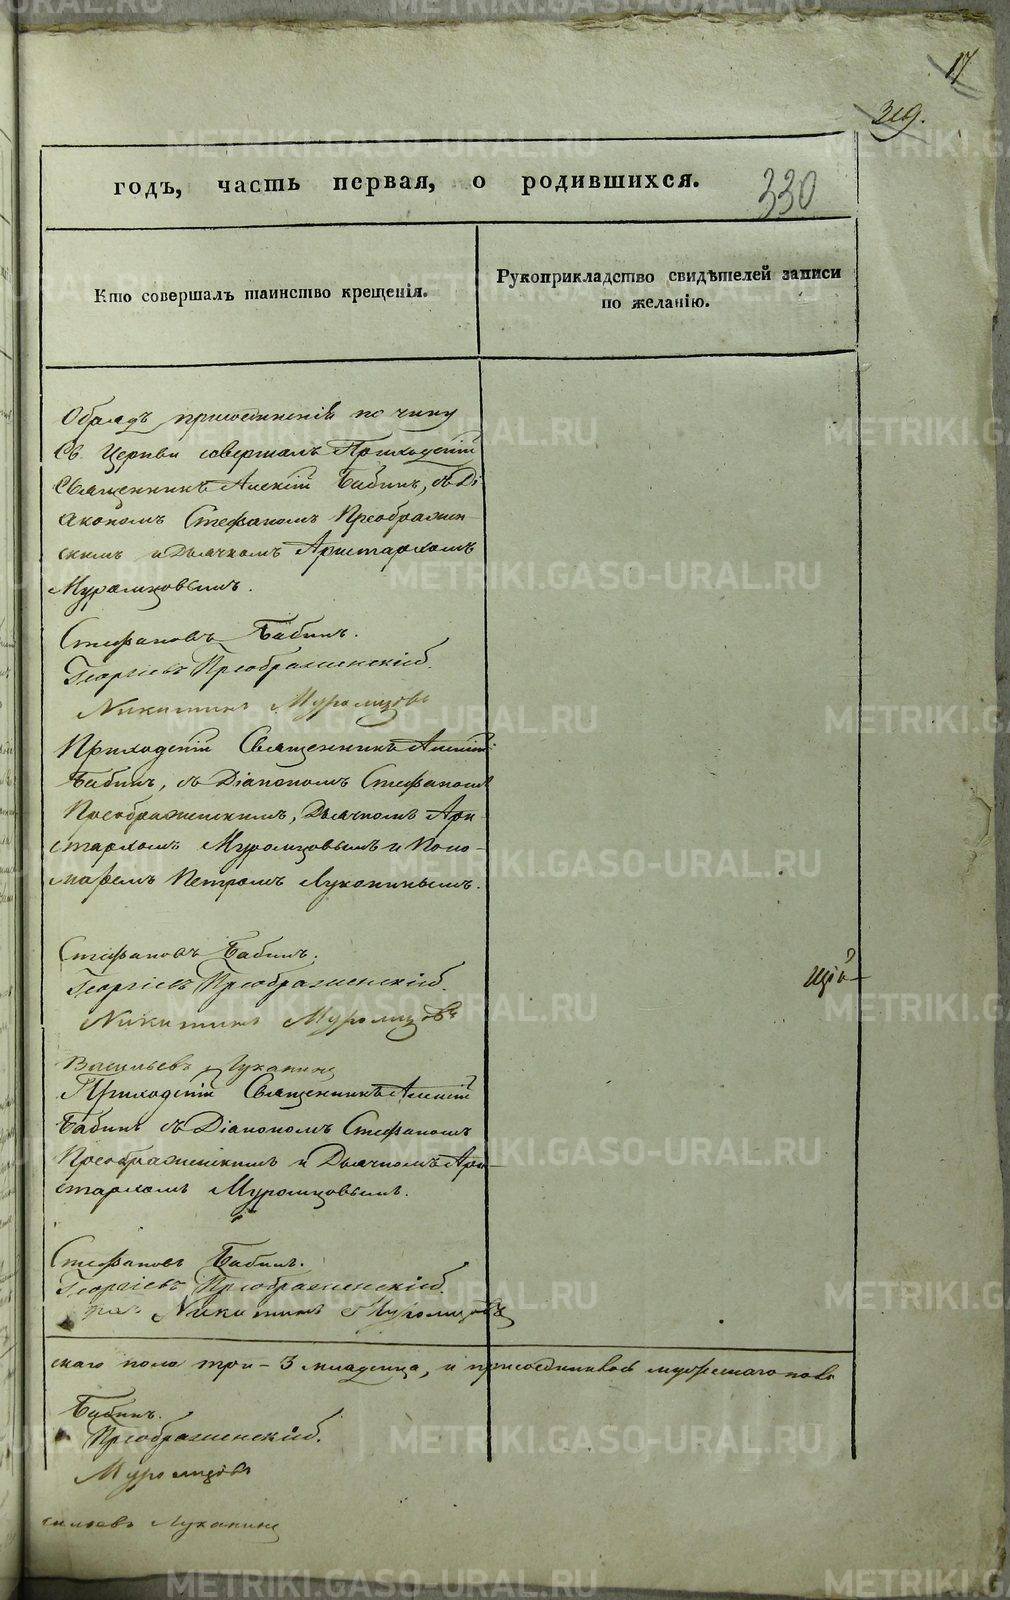 17
319.
годъ, часть первая, о родившихся.
330
Кто совершалъ таинство крещенія.
Рукоприкладство свидѣтелей записи
по желанію.
Обрядъ присоединенія по чину
Св. Церкви совершалъ Приходскій
Священникъ Алексій Бабинъ, съ Ді
акономъ Стефаномъ Преображен-
скимъ и Дьячкомъ Аристархомъ
Муромцовымъ.
Стефановъ Бабинъ.
Георгіевъ Преображенскій.
Никитинъ Муромцовъ
Приходскій Священникъ Алексій
Бабинъ, съ Діакономъ Стефаномъ
Преображенскимъ, Дьячкомъ Ари-
стархомъ Муромцовымъ и Поно-
маремъ Петромъ Луканинымъ.
Стефановъ Бабинъ.
Георгіевъ Преображенскій.
Никитинъ Муромцовъ
щій
Васильевъ Луканинъ
Приходскій Священникъ Алексій
Бабинъ съ Діакономъ Стефаномъ
Преображенскимъ и Дьячкомъ Ари-
стархомъ Муромцовымъ.
Стефановъ Бабинъ.
Георгіевъ Преображенскій.
Никитинъ Муромцовъ
скаго пола три - 3 младенца, и присоединился мужескаго пола
Бабинъ.
Преображенскій.
Муромцовъ
сильевъ Луканинъ
METRIKI.GASO-URAL.RU